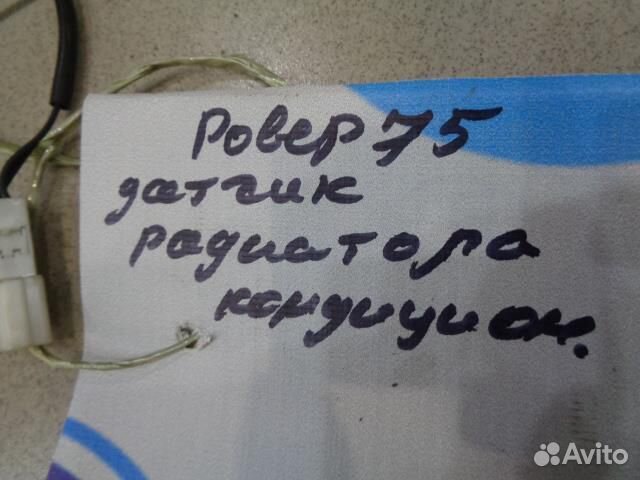 Ровер 75
датчик
радиатора
кондицион.
Avito